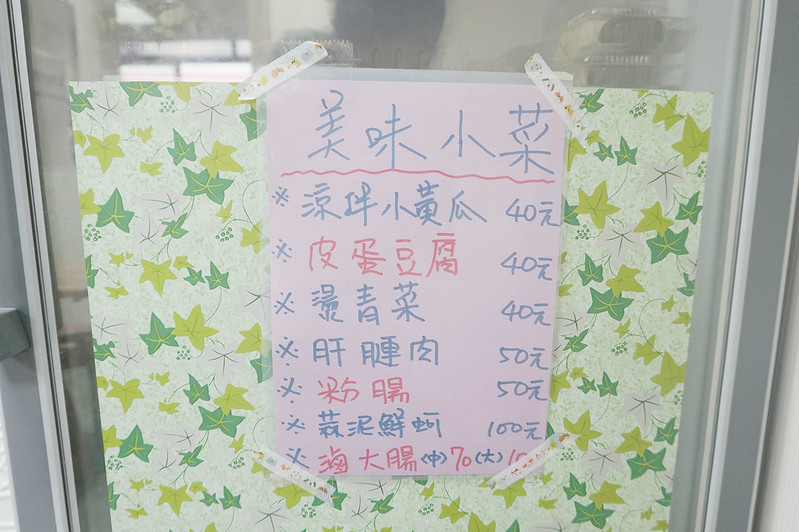 美味小菜
※涼拌小黃瓜 40元
※皮蛋豆腐 40元
※燙青菜 40元
※肝腪肉 50元
※粉腸 50元
※蒜泥鮮蚵 100元
※滷大腸(中)70(大)